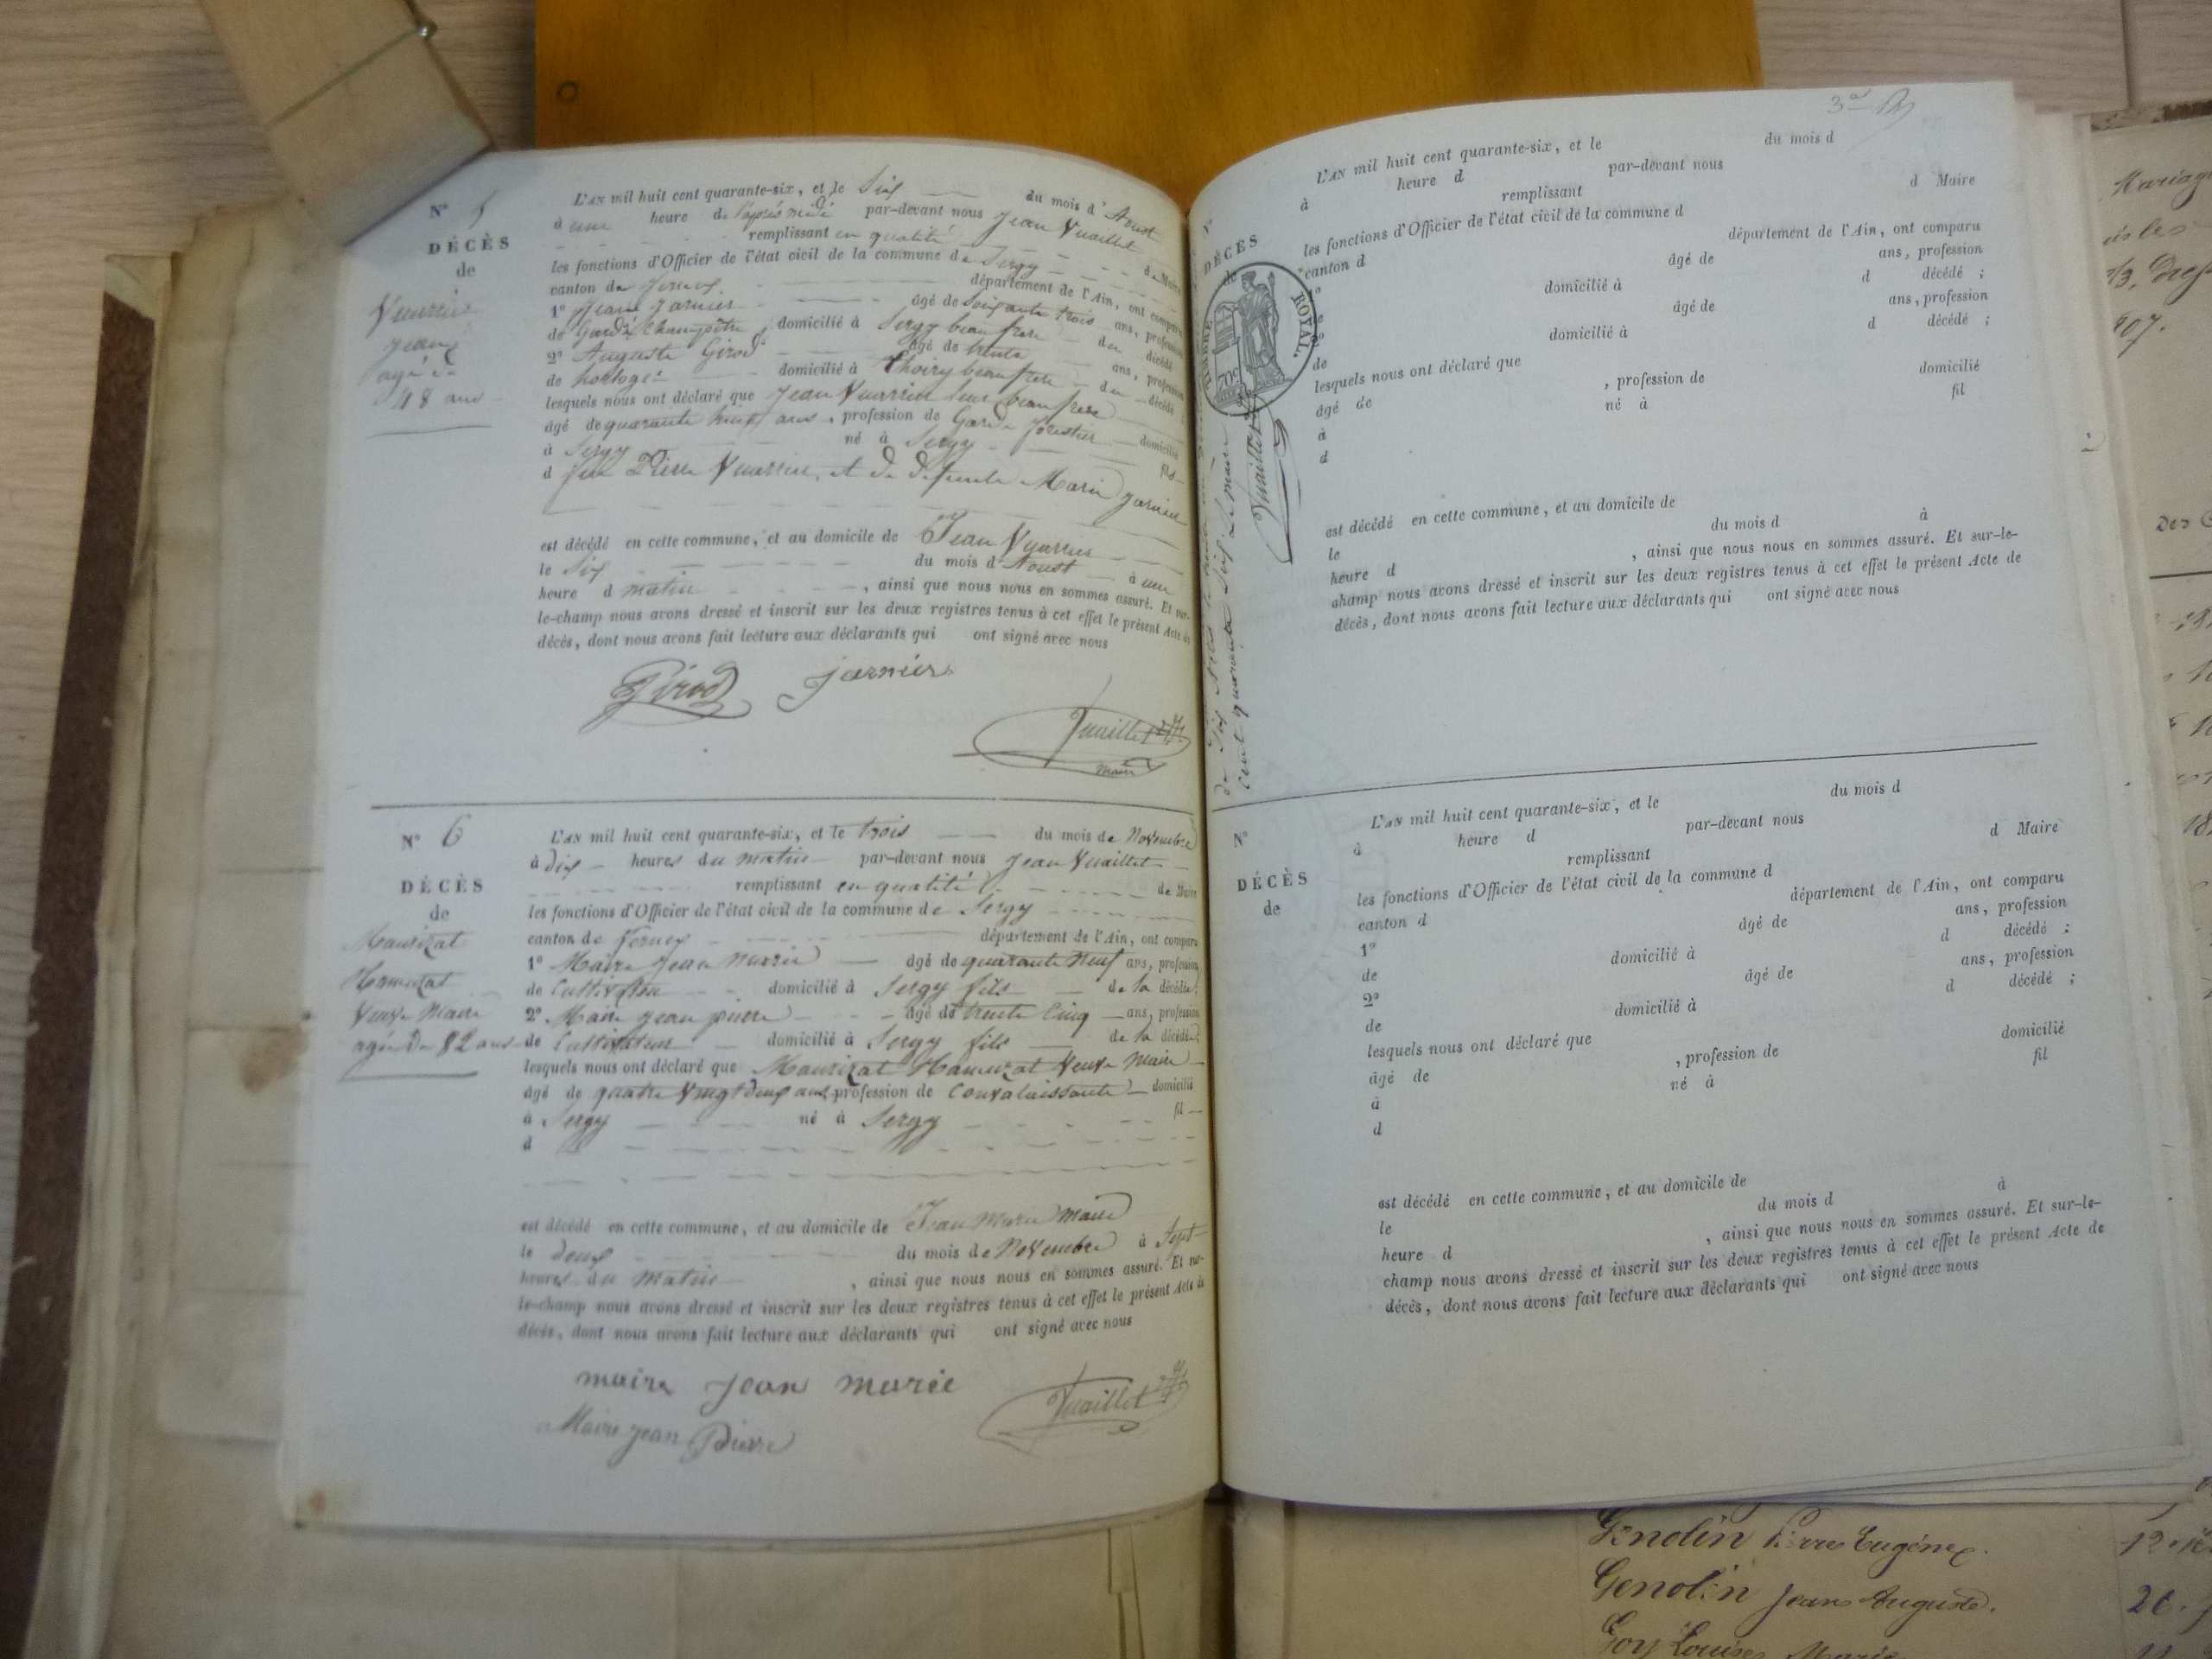 N° 5
DÉCÈS
de
Vuarrin
Jean
agé de
48 ans
L'AN mil huit cent quarante-six, et le Six du mois d'Aoust
à une heure de l'après midi par-devant nous Jean Vuaillet
remplissant en qualité de Maire
les fonctions d'Officier de l'état civil de la commune de Sergy
canton de Ferney département de l'Ain, ont comparu
1° Jean Jarnier âgé de Soixante trois ans, profession
de Garde Champêtre, domicilié à Sergy beau frere du décédé
2° Auguste Girod âgé de trente ans, profession
de horloger domicilié à Thoiry beau frere du décédé
lesquels nous ont déclaré que Jean Vuarrin leur beau frere
âgé de quarante huit ans, profession de Garde forestier domicilié
à Sergy né à Sergy fils
d feu Pierre Vuarrin, et de defunte Marie Jarnier
est décédé en cette commune, et au domicile de Jean Vuarrin
le Six du mois d'Aoust à une
heure d matin, ainsi que nous nous en sommes assuré. Et sur-
le-champ nous avons dressé et inscrit sur les deux registres tenus à cet effet le présent Acte de
décès, dont nous avons fait lecture aux déclarants qui ont signé avec nous
Girod Jarnier
Vuaillet
Maire
N° 6
DÉCÈS
de
Veuve Maire
agée de 82 ans
L'AN mil huit cent quarante-six, et le trois du mois de Novembre
à dix heures du matin par-devant nous Jean Vuaillet
remplissant en qualité de Maire
les fonctions d'Officier de l'état civil de la commune de Sergy
canton de Ferney département de l'Ain, ont comparu
1° Maire Jean Marie âgé de quarante Neuf ans, profession
de Cultivateur domicilié à Sergy fils de la décédée;
2° Maire Jean pierre âgé de trente Cinq ans, profession
de Cultivateur domicilié à Sergy fils de la décédée;
lesquels nous ont déclaré que Veuve Maire
âgé de quatre Vingt deux ans, profession de domicilié
à Sergy né à Sergy fil
d
est décédé en cette commune, et au domicile de Jean Marie Maire
le deux du mois de Novembre à Sept
heures du Matin, ainsi que nous nous en sommes assuré. Et sur-
le-champ nous avons dressé et inscrit sur les deux registres tenus à cet effet le présent Acte de
décès, dont nous avons fait lecture aux déclarants qui ont signé avec nous
maire Jean marie
Vuaillet
Maire Jean Pierre
N°
DÉCÈS
de
TIMBRE ROYAL.
70c
Vuaillet
L'AN mil huit cent quarante-six, et le du mois d
à heure d par-devant nous
remplissant d Maire
les fonctions d'Officier de l'état civil de la commune d
canton d département de l'Ain, ont comparu
1° âgé de ans, profession
de domicilié à d décédé ;
2° âgé de ans, profession
de domicilié à d décédé ;
lesquels nous ont déclaré que
âgé de , profession de domicilié
à né à fil
d
est décédé en cette commune, et au domicile de
le du mois d à
heure d , ainsi que nous nous en sommes assuré. Et sur-le-
champ nous avons dressé et inscrit sur les deux registres tenus à cet effet le présent Acte de
décès, dont nous avons fait lecture aux déclarants qui ont signé avec nous
N°
DÉCÈS
de
L'AN mil huit cent quarante-six, et le du mois d
à heure d par-devant nous
remplissant d Maire
les fonctions d'Officier de l'état civil de la commune d
canton d département de l'Ain, ont comparu
1° âgé de ans, profession
de domicilié à d décédé ;
2° âgé de ans, profession
de domicilié à d décédé ;
lesquels nous ont déclaré que
âgé de , profession de domicilié
à né à fil
d
est décédé en cette commune, et au domicile de
le du mois d à
heure d , ainsi que nous nous en sommes assuré. Et sur-le-
champ nous avons dressé et inscrit sur les deux registres tenus à cet effet le présent Acte de
décès, dont nous avons fait lecture aux déclarants qui ont signé avec nous
Genolin Eugène.
Genolin Jean Auguste. 26.
Goy Louise Marie